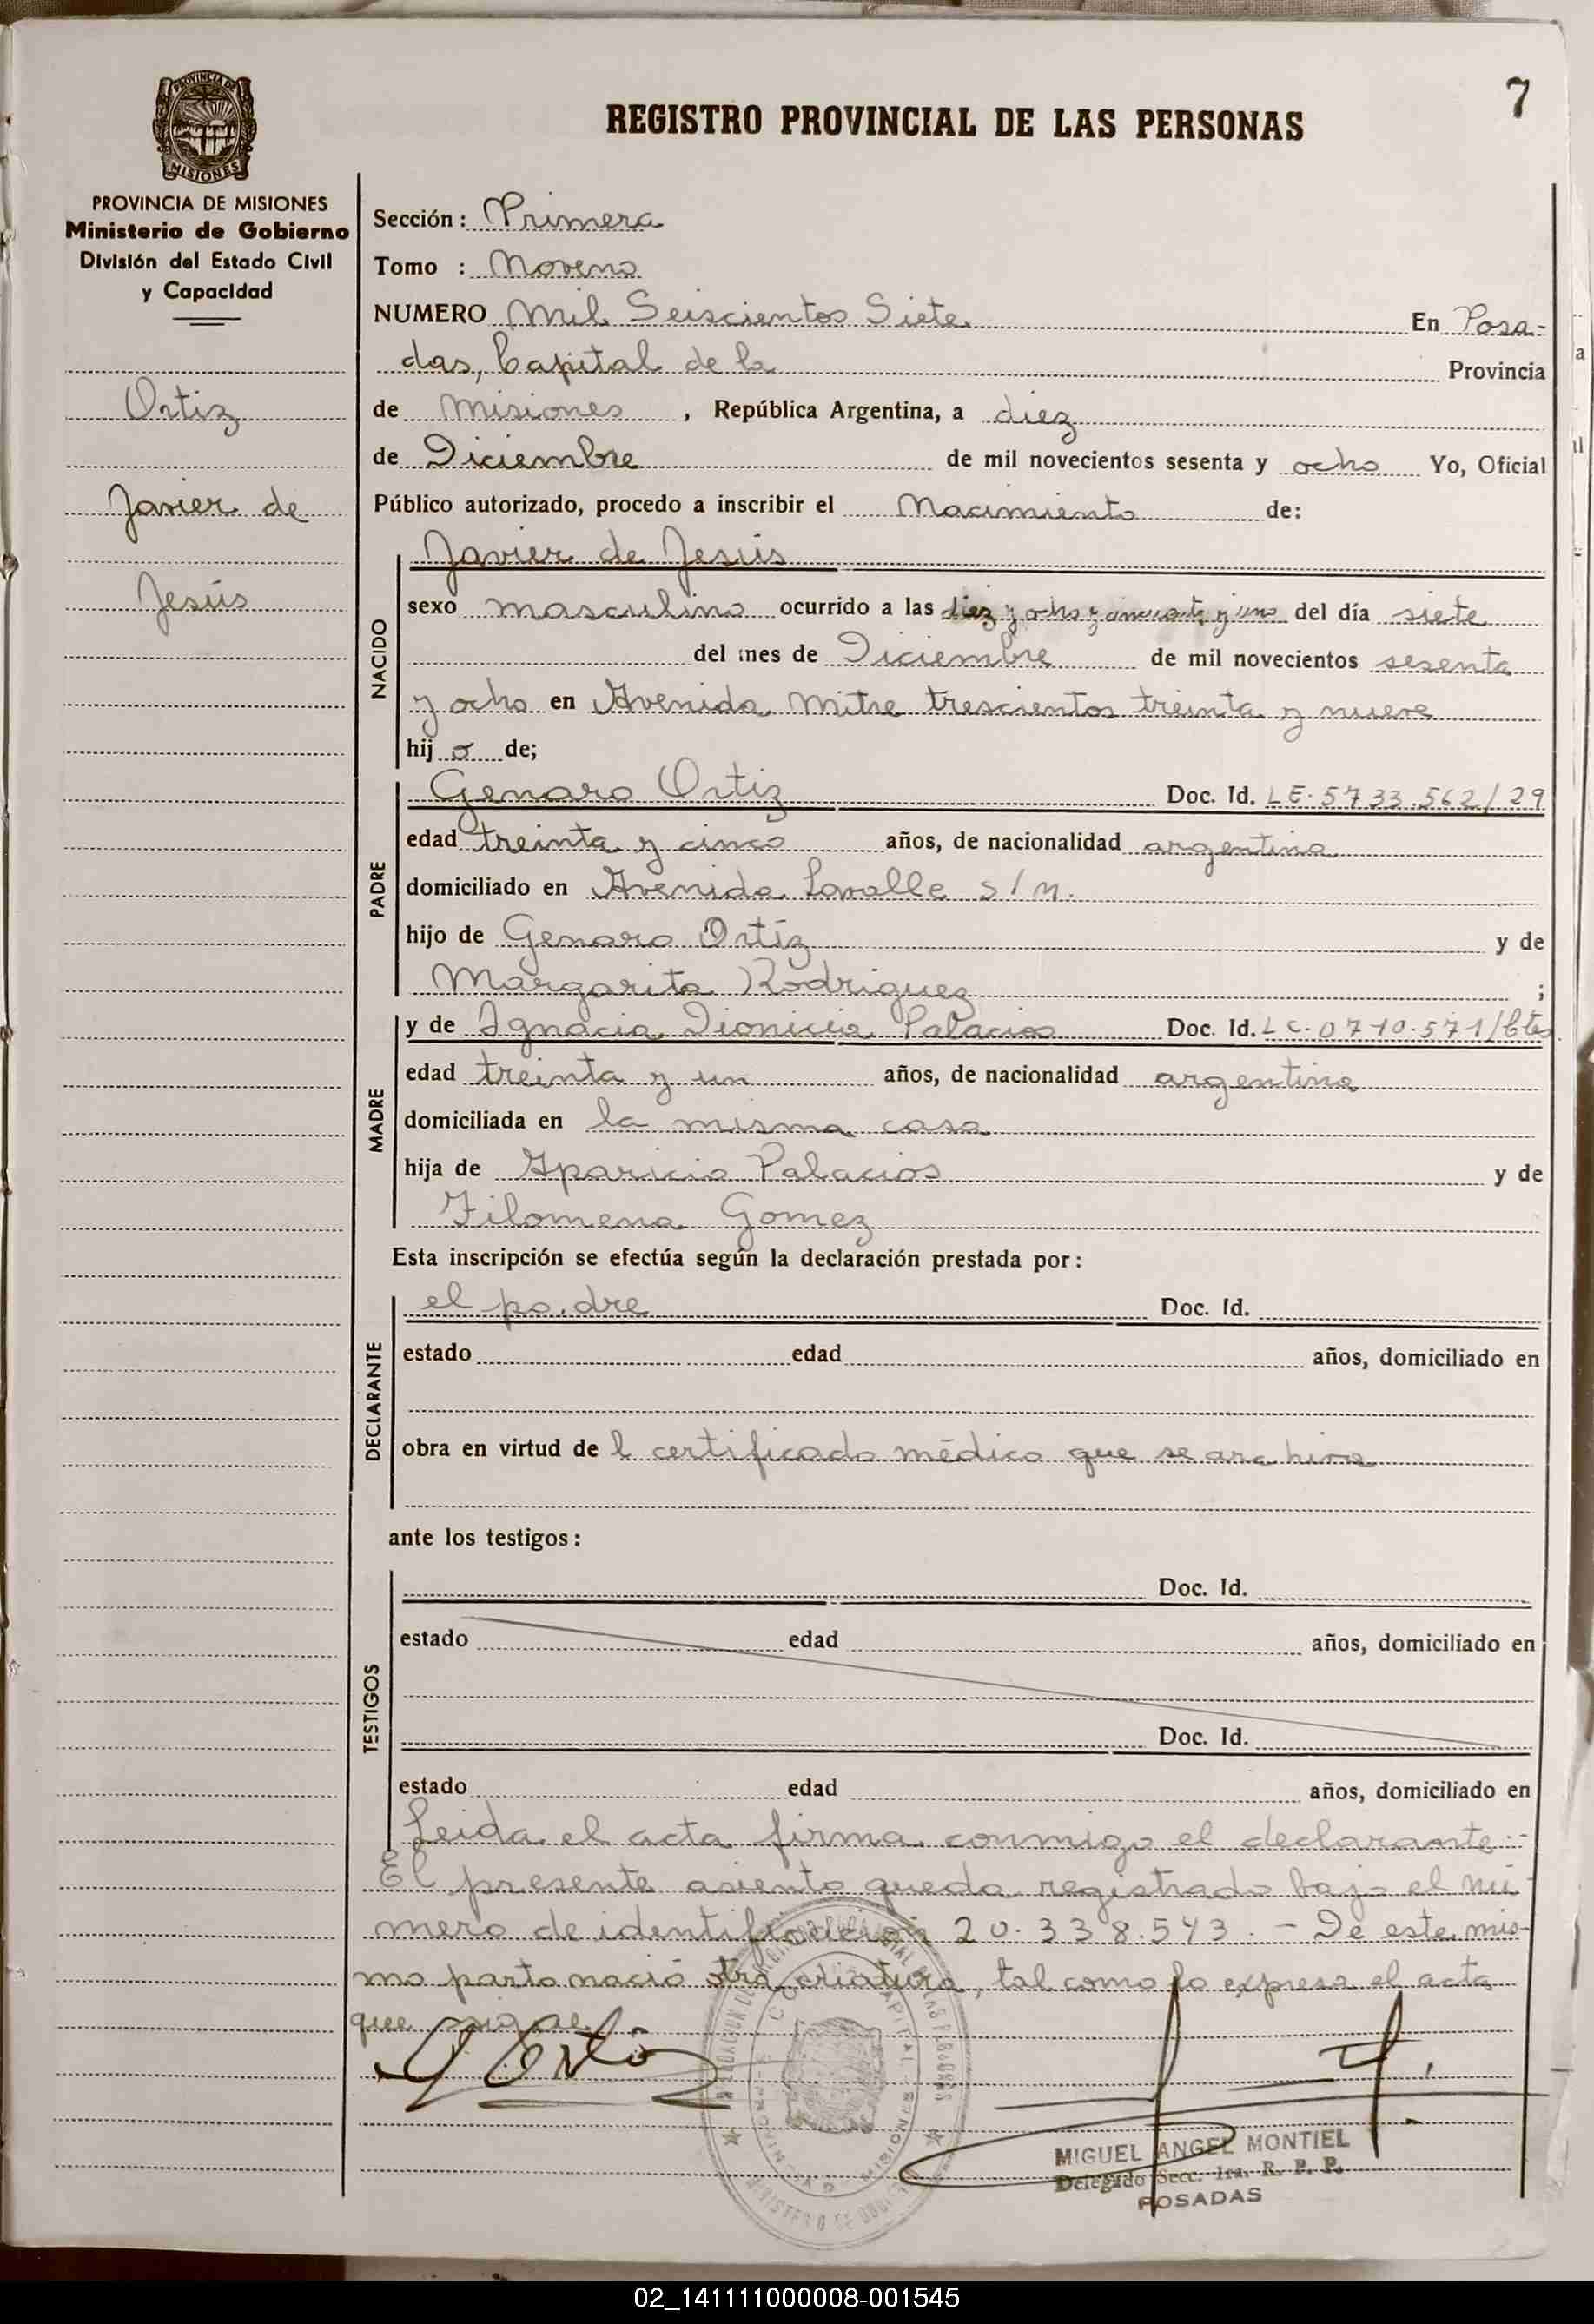 7
REGISTRO PROVINCIAL DE LAS PERSONAS
PROVINCIA DE
MISIONES
PROVINCIA DE MISIONES
Ministerio de Gobierno
División del Estado Civil
y Capacidad
Ortiz
Javier de
Jesús
Sección: Primera
Tomo : Noveno
NUMERO Mil Seiscientos Siete En Posa-
das, Capital de la Provincia
de Misiones , República Argentina, a diez
de Diciembre de mil novecientos sesenta y ocho Yo, Oficial
Público autorizado, procedo a inscribir el Nacimiento de:
NACIDO
Javier de Jesús
sexo masculino ocurrido a las diez y ocho y cincuenta y uno del día siete
del mes de Diciembre de mil novecientos sesenta
y ocho en Avenida Mitre trescientos treinta y nueve
hij o de;
PADRE
Genaro Ortiz Doc. Id. LE. 5733.562/29
edad treinta y cinco años, de nacionalidad argentina
domiciliado en Avenida Lavalle s/n.
hijo de Genaro Ortiz y de
Margarita Rodriguez ;
MADRE
y de Ignacia Dionicia Palacios Doc. Id. LC. 0710.571/Ctes
edad treinta y un años, de nacionalidad argentina
domiciliada en la misma casa
hija de Aparicio Palacios y de
Filomena Gomez
Esta inscripción se efectúa según la declaración prestada por:
DECLARANTE
el padre Doc. Id.
estado edad años, domiciliado en
obra en virtud de l certificado médico que se archiva
ante los testigos:
TESTIGOS
Doc. Id.
estado edad años, domiciliado en
Doc. Id.
estado edad años, domiciliado en
Leida el acta firma conmigo el declarante.-
El presente asiento queda registrado bajo el nú-
mero de identificación 20.338.543. - De este mis-
mo parto nació otra criatura, tal como lo expresa el acta
que sigue
G Ortiz
MIGUEL ANGEL MONTIEL
Delegado Secc. 1ra. R. P. P.
POSADAS
02_141111000008-001545